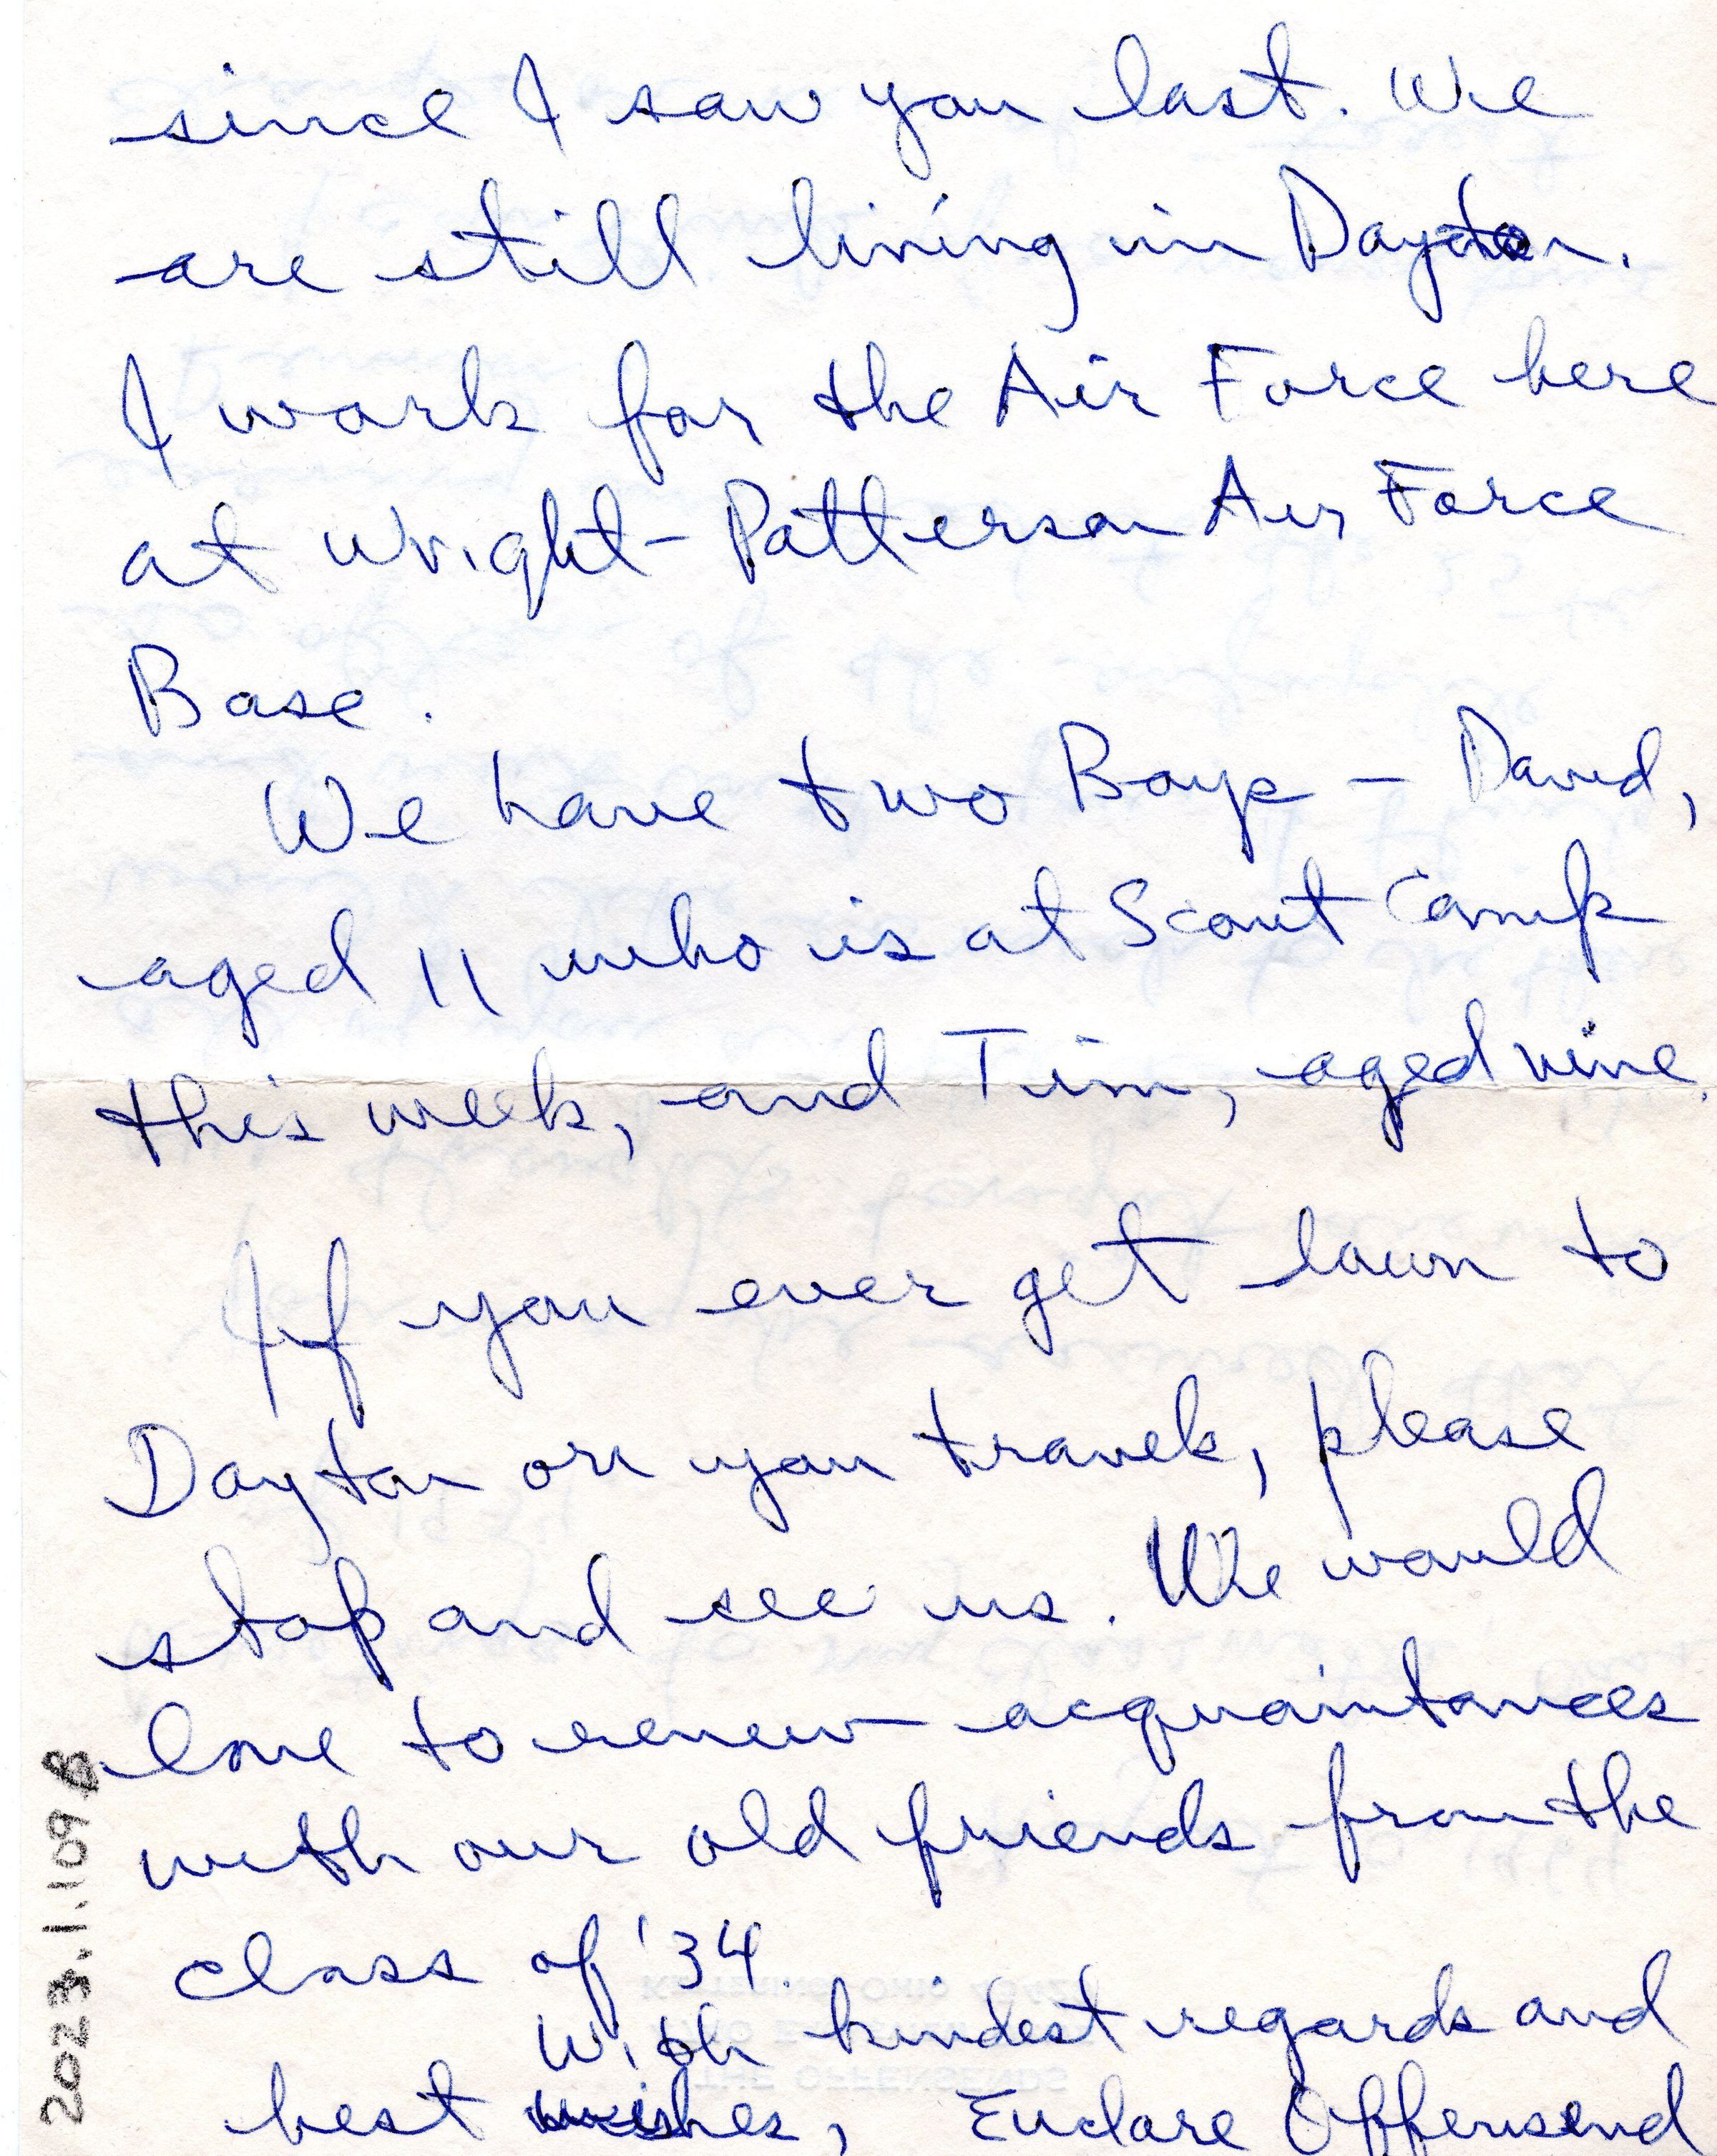 since I saw you last. We
are still living in Dayton.
I work for the Air Force here
at Wright-Patterson Air Force
Base.
We have two Boys - David,
aged 11 who is at Scout Camp
this week, and Tim, aged nine.
If you ever get down to
Dayton on you travels, please
stop and see us. We would
love to renew acquaintances
with our old friends from the
class of '34.
With kindest regards and
best wishes, Euclare Offensend
2023.1.109B